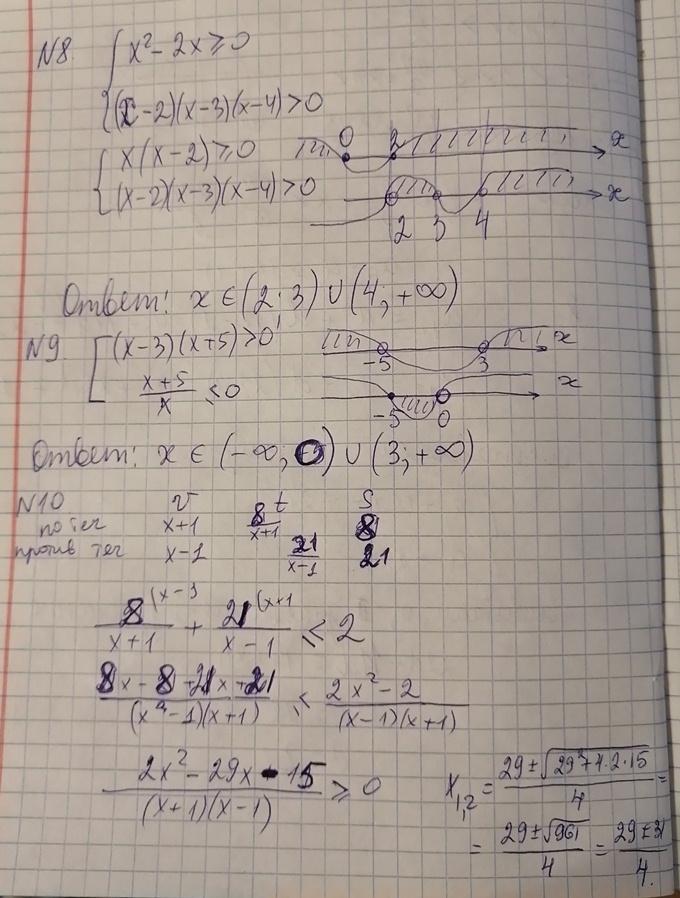 N8. { x² - 2x ≥ 0
(x-2)(x-3)(x-4) > 0
{ x(x-2) ≥ 0
0 2 x
(x-2)(x-3)(x-4) > 0
x
2 3 4
Ответ: x ∈ (2; 3) ∪ (4; +∞)
N9 [ (x-3)(x+5) > 0
-5 3 x
x+5 / x ≤ 0
-5 0 x
Ответ: x ∈ (-∞; 0) ∪ (3; +∞)
N10 v t S
по теч x+1 8/(x+1) 8
против теч x-1 21/(x-1) 21
8 (x-1 / x+1 + 21 (x+1 / x-1 ≤ 2
8x - 8 + 21x + 21 / (x-1)(x+1) ≤ 2x² - 2 / (x-1)(x+1)
2x² - 29x - 15 / (x+1)(x-1) ≥ 0
x₁,₂ = 29 ± √(29² + 4·2·15) / 4 =
= 29 ± √961 / 4 = 29 ± 31 / 4.